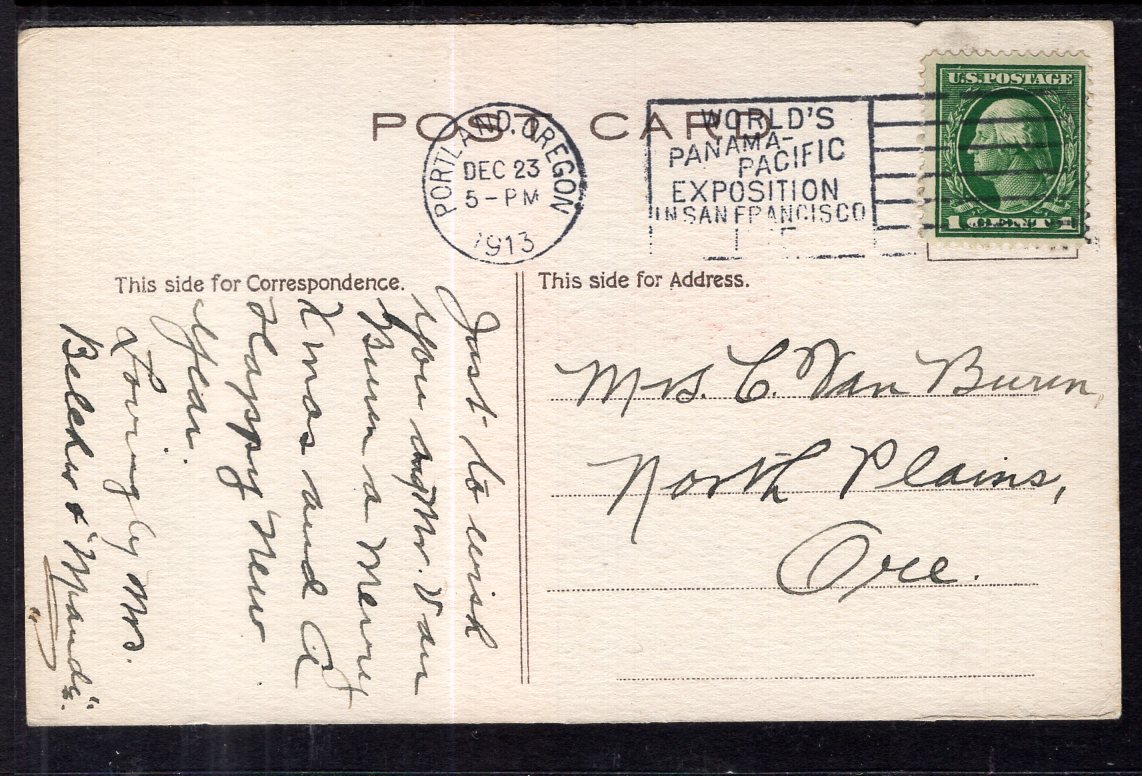 POST CARD
PORTLAND, OREGON
DEC 23
5-PM
1913
WORLD'S
PANAMA-
PACIFIC
EXPOSITION
IN SAN FRANCISCO
U.S. POSTAGE
1 CENT 1
This side for Correspondence.
This side for Address.
Just to wish
you and Mr. Van
Buren a Merry
Xmas and A
Happy New
Year.
Lovingly Mrs.
&
Mrs. C. Van Buren,
North Plains,
Ore.